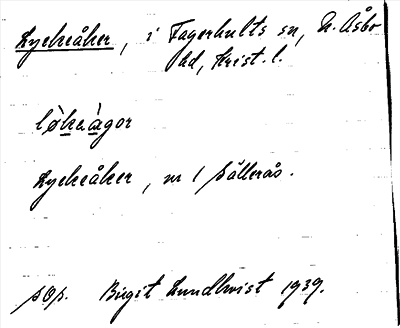 Lyckeåker, i Fagerhults sn, N. Åsbo
hd, Krist. l.
lø̀kaàgor
Lyckeåker, nr 1 Källerås.
sOp. Birgit Lundkvist 1939.